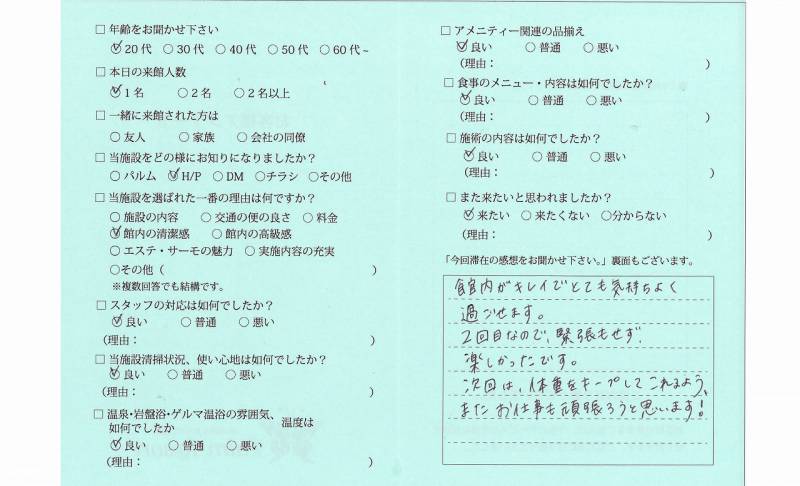 □ 年齢をお聞かせ下さい
○20代 ○30代 ○40代 ○50代 ○60代~
□ 本日の来館人数
○1名 ○2名 ○2名以上
□ 一緒に来館された方は
○友人 ○家族 ○会社の同僚
□ 当施設をどの様にお知りになりましたか?
○パルム ○H/P ○DM ○チラシ ○その他
□ 当施設を選ばれた一番の理由は何ですか?
○施設の内容 ○交通の便の良さ ○料金
○館内の清潔感 ○館内の高級感
○エステ・サーモの魅力 ○実施内容の充実
○その他( )
※複数回答でも結構です。
□ スタッフの対応は如何でしたか?
○良い ○普通 ○悪い
(理由: )
□ 当施設清掃状況、使い心地は如何でしたか?
○良い ○普通 ○悪い
(理由: )
□ 温泉・岩盤浴・ゲルマ温浴の雰囲気、温度は
如何でしたか
○良い ○普通 ○悪い
(理由: )
□ アメニティー関連の品揃え
○良い ○普通 ○悪い
(理由: )
□ 食事のメニュー・内容は如何でしたか?
○良い ○普通 ○悪い
(理由: )
□ 施術の内容は如何でしたか?
○良い ○普通 ○悪い
(理由: )
□ また来たいと思われましたか?
○来たい ○来たくない ○分からない
(理由: )
「今回滞在の感想をお聞かせ下さい。」裏面もございます。
館内がキレイでとても気持ちよく
過ごせます。
2回目なので、緊張もせず、
楽しかったです。
次回は、体重をキープしてこれるよう、
またお仕事も頑張ろうと思います!